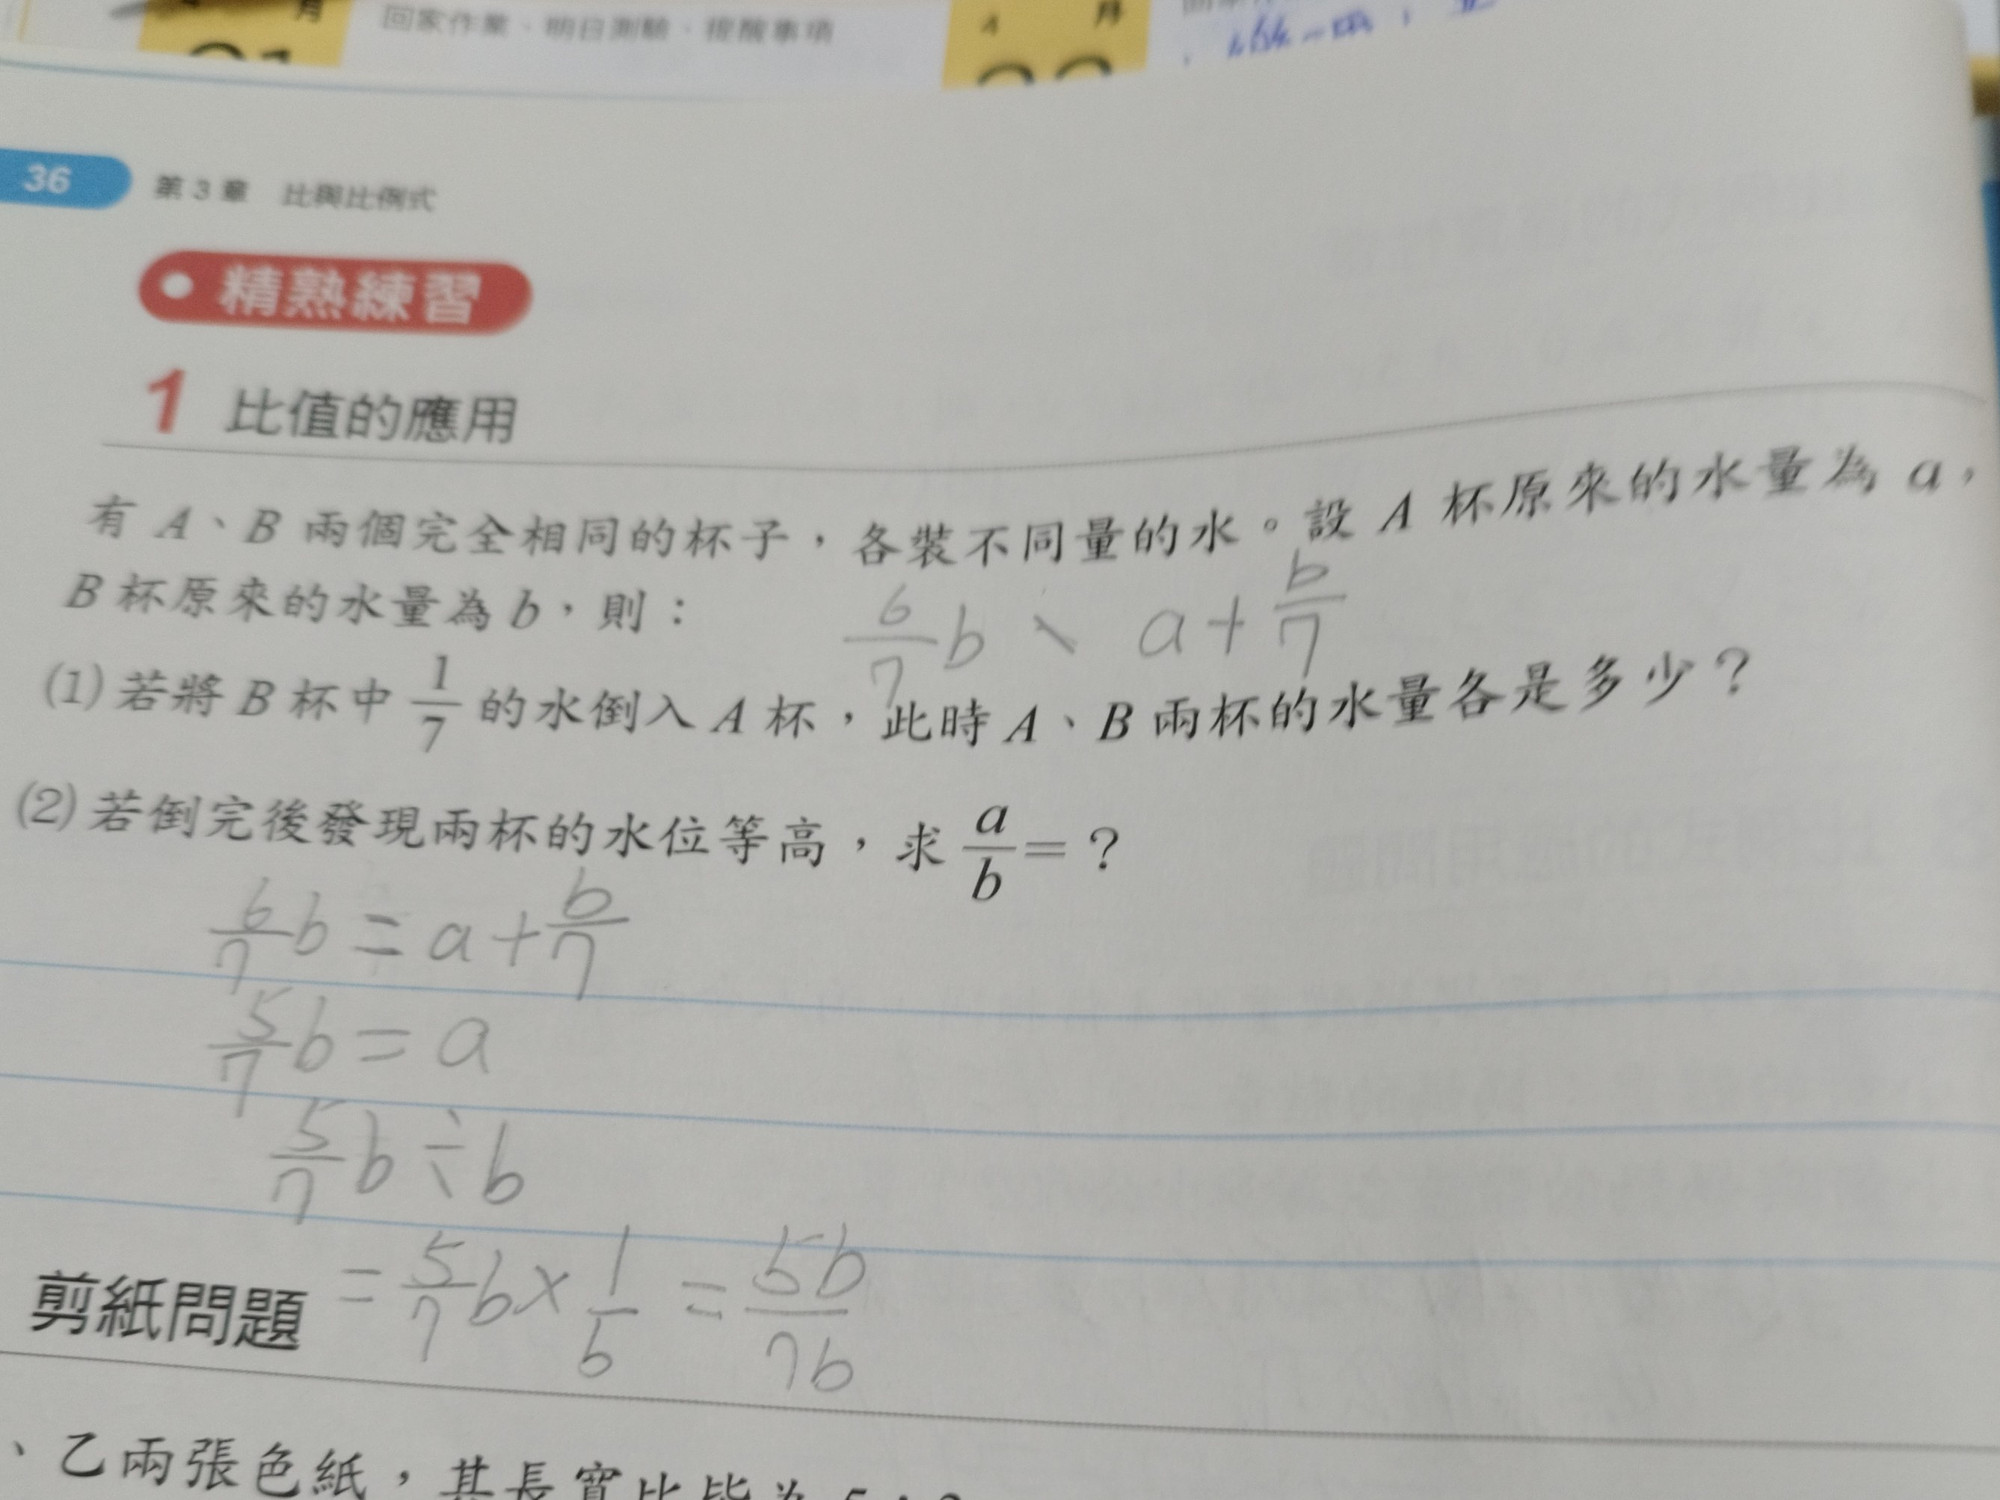 4 月 回家作業、明日測驗、提醒事項 4 月
36 第3章 比與比例式
精熟練習
1 比值的應用
有 A、B 兩個完全相同的杯子，各裝不同量的水。設 A 杯原來的水量為 a，
B 杯原來的水量為 b，則：
6/7 b、 a+b/7
(1) 若將 B 杯中 1/7 的水倒入 A 杯，此時 A、B 兩杯的水量各是多少？
(2) 若倒完後發現兩杯的水位等高，求 a/b = ？
6/7 b = a+b/7
5/7 b = a
5/7 b÷b
剪紙問題 = 5/7 b×1/b = 5b/7b
、乙兩張色紙，其長寬比皆為